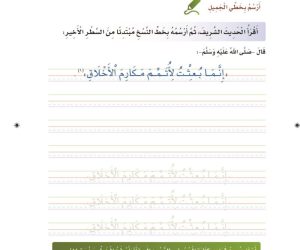 أَرْسُمُ بِخَطِّي الْجَمِيلِ
أَقْرَأُ الْحَدِيثَ الشَّرِيفَ، ثُمَّ أَرْسُمُهُ بِخَطِّ النَّسْخِ مُبْتَدِئًا مِنَ السَّطْرِ الْأَخِيرِ:
قَالَ -صَلَّى اللهُ عَلَيْهِ وَسَلَّمَ-:
«إِنَّمَا بُعِثْتُ لِأُتَمِّمَ مَكَارِمَ الْأَخْلَاقِ»(١).
إِنَّمَا بُعِثْتُ لِأُتَمِّمَ مَكَارِمَ الْأَخْلَاقِ
إِنَّمَا بُعِثْتُ لِأُتَمِّمَ مَكَارِمَ الْأَخْلَاقِ
إِنَّمَا بُعِثْتُ لِأُتَمِّمَ مَكَارِمَ الْأَخْلَاقِ